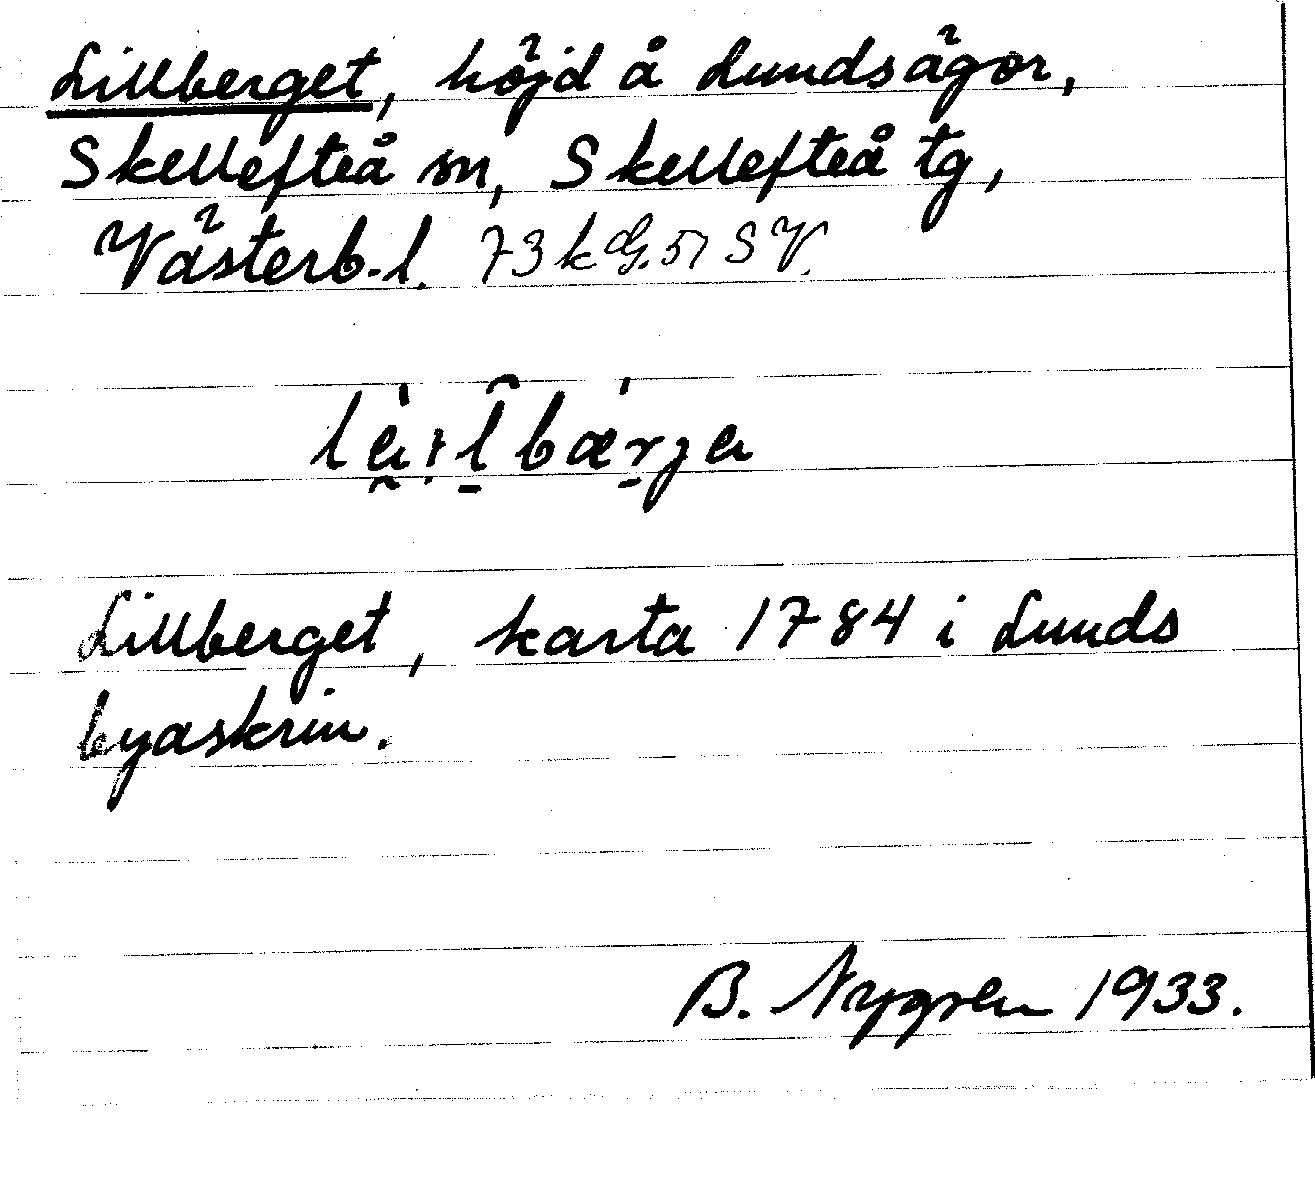 Lillberget, höjd å Lundsägor,
Skellefteå sn, Skellefteå tg,
Västerb. l. 73 k G. 51 SV.
Lillberget, karta 1784 i Lunds
byaskrin.
B. Nygren 1933.